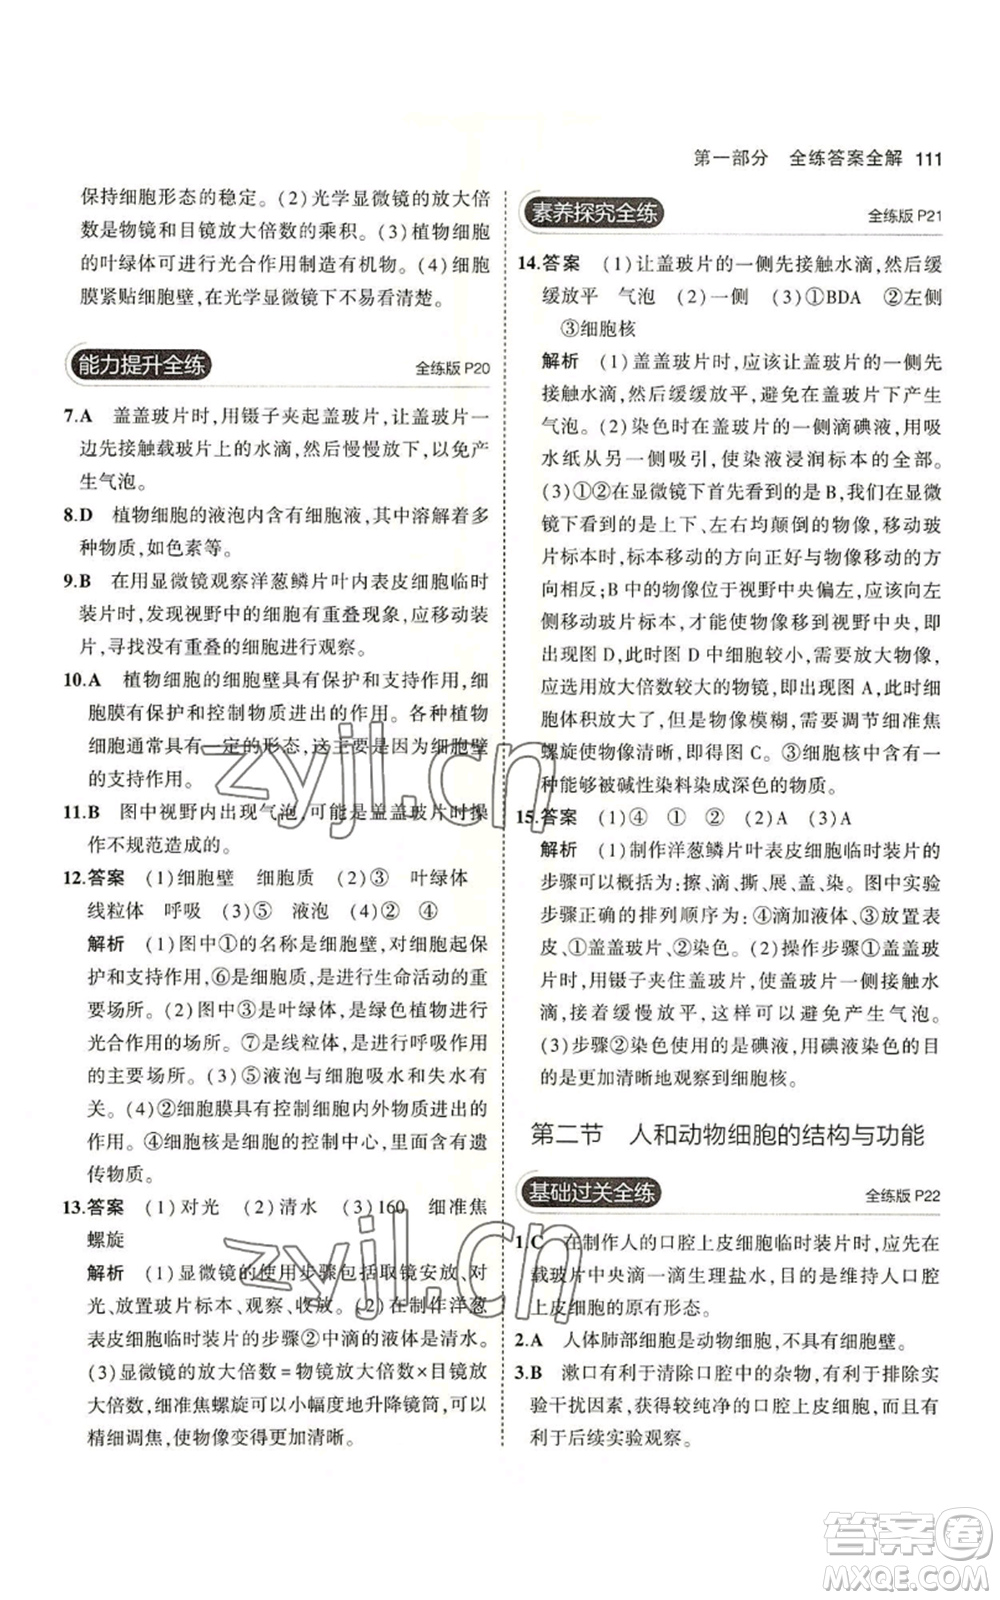 第一部分　全练答案全解　111
保持细胞形态的稳定。(2)光学显微镜的放大倍
数是物镜和目镜放大倍数的乘积。(3)植物细胞
的叶绿体可进行光合作用制造有机物。(4)细胞
膜紧贴细胞壁,在光学显微镜下不易看清楚。
能力提升全练　全练版 P20
7.A　盖盖玻片时,用镊子夹起盖玻片,让盖玻片一
边先接触载玻片上的水滴,然后慢慢放下,以免产
生气泡。
8.D　植物细胞的液泡内含有细胞液,其中溶解着多
种物质,如色素等。
9.B　在用显微镜观察洋葱鳞片叶内表皮细胞临时
装片时,发现视野中的细胞有重叠现象,应移动装
片,寻找没有重叠的细胞进行观察。
10.A　植物细胞的细胞壁具有保护和支持作用,细
胞膜有保护和控制物质进出的作用。各种植物
细胞通常具有一定的形态,这主要是因为细胞壁
的支持作用。
11.B　图中视野内出现气泡,可能是盖盖玻片时操
作不规范造成的。
12.答案　(1)细胞壁　细胞质　(2)③　叶绿体
线粒体　呼吸　(3)⑤　液泡　(4)②　④
解析　(1)图中①的名称是细胞壁,对细胞起保
护和支持作用,⑥是细胞质,是进行生命活动的重
要场所。(2)图中③是叶绿体,是绿色植物进行
光合作用的场所。⑦是线粒体,是进行呼吸作用
的主要场所。(3)⑤液泡与细胞吸水和失水有
关。(4)②细胞膜具有控制细胞内外物质进出的
作用。④细胞核是细胞的控制中心,里面含有遗
传物质。
13.答案　(1)对光　(2)清水　(3)160　细准焦
螺旋
解析　(1)显微镜的使用步骤包括取镜安放、对
光、放置玻片标本、观察、收放。(2)在制作洋葱
表皮细胞临时装片的步骤②中滴的液体是清水。
(3)显微镜的放大倍数=物镜放大倍数×目镜放
大倍数。细准焦螺旋可以小幅度地升降镜筒,可以
精细调焦,使物像变得更加清晰。
素养探究全练　全练版 P21
14.答案　(1)让盖玻片的一侧先接触水滴,然后缓
缓放平　气泡　(2)一侧　(3)①BDA　②左侧
③细胞核
解析　(1)盖盖玻片时,应该让盖玻片的一侧先
接触水滴,然后缓缓放平,避免在盖玻片下产生
气泡。(2)染色时在盖玻片的一侧滴碘液,用吸
水纸从另一侧吸引,使染液浸润标本的全部。
(3)①②在显微镜下首先看到的是 B,我们在显微
镜下看到的是上下、左右均颠倒的物像,移动玻
片标本时,标本移动的方向正好与物像移动的方
向相反;B 中的物像位于视野中央偏左,应该向左
侧移动玻片标本,才能使物像移到视野中央,即
出现图 D,此时图 D 中的细胞较小,需放大物像,
应选用放大倍数较大的物镜,即出现图 A,此时细
胞体积放大了,但是物像模糊,需要调节细准焦
螺旋使物像清晰,即得图 C。③细胞核中含有一
种能够被碱性染料染成深色的物质。
15.答案　(1)④　①　②　(2)A　(3)A
解析　(1)制作洋葱鳞片叶表皮细胞临时装片的
步骤可以简要归纳为:擦、滴、撕、展、盖、染。图中实验
步骤正确的排列顺序为:④滴加液体、③放置表
皮、①盖盖玻片、②染色。(2)操作步骤①盖盖玻
片时,用镊子夹住盖玻片,使盖玻片一侧接触水
滴,接着缓慢放平,这样可以避免产生气泡。
(3)步骤②染色使用的是碘液,用碘液染色的目
的是更加清晰地观察到细胞核。
第二节　人和动物细胞的结构与功能
基础过关全练　全练版 P22
1.C　在制作人的口腔上皮细胞临时装片时,应先在
载玻片中央滴一滴生理盐水,目的是维持人口腔
上皮细胞的原有形态。
2.A　人体肺部细胞是动物细胞,不具有细胞壁。
3.B　漱口有利于清除口腔中的杂物,有利于排除实
验干扰因素,获得较纯净的口腔上皮细胞,但没有
利于后续实验观察。
zyjl.cn
zyjl.cn
答案圈
MXQE.COM